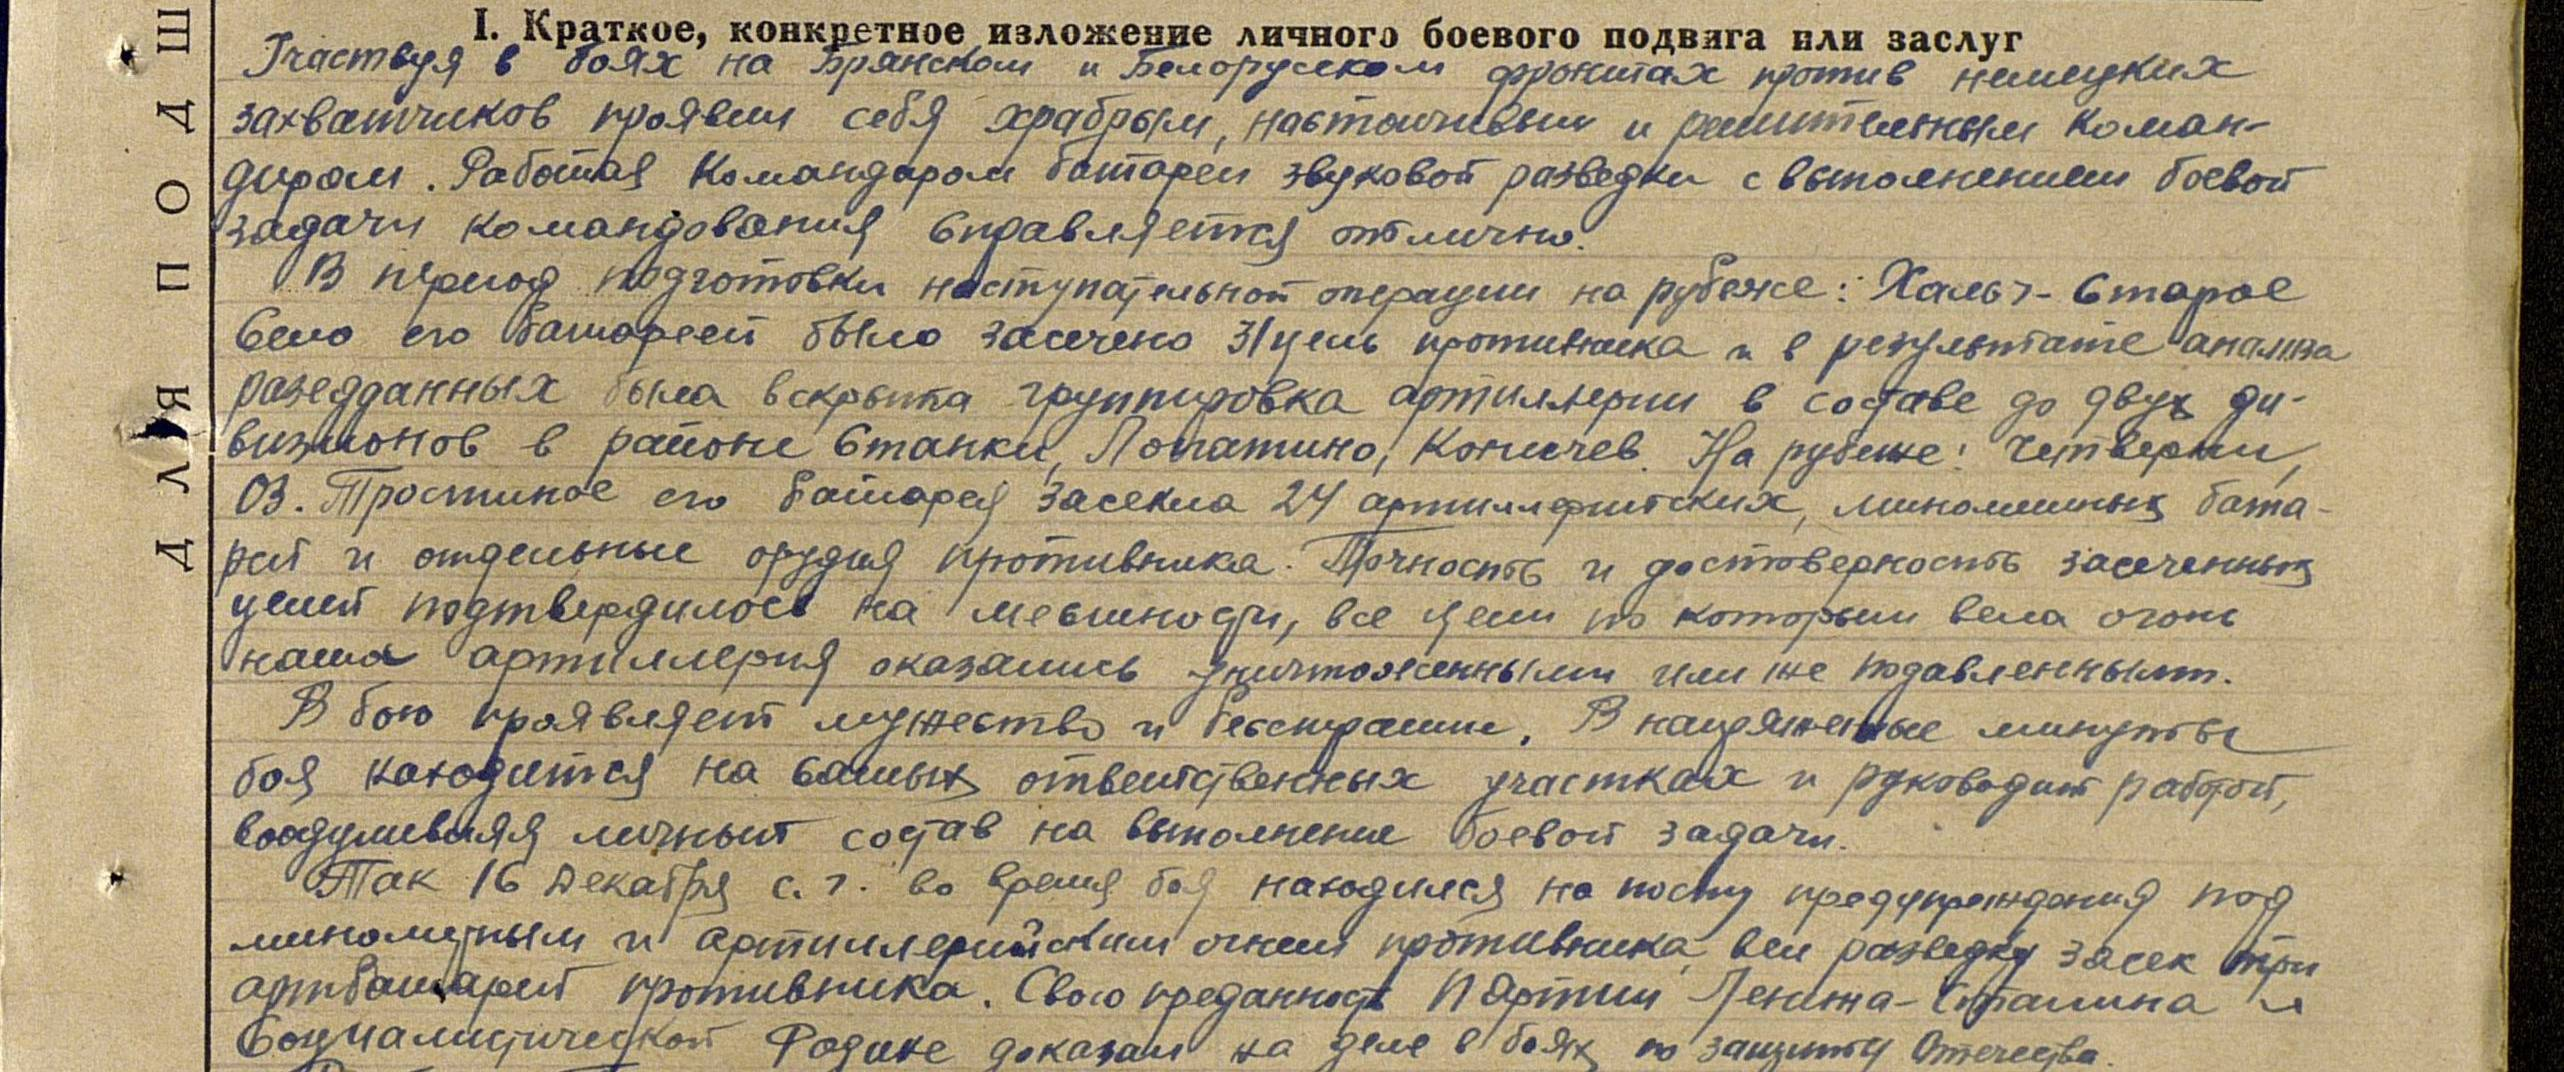 ДЛЯ ПОДШ
I. Краткое, конкретное изложение личного боевого подвига или заслуг
Участвуя в боях на Брянском и Белорусском фронтах против немецких
захватчиков проявил себя храбрым, настойчивым и решительным коман-
диром. Работая командиром батареи звуковой разведки с выполнением боевой
задачи командования справляется отлично.
В период подготовки наступательной операции на рубеже: Хальч - Старое
Село его батареей было засечено 31 цель противника и в результате анализа
разведданных была вскрыта группировка артиллерии в составе до двух ди-
визионов в районе Станки, Лопатино, Коничев. На рубеже: Четверни,
ОЗ. Тростиное его батарея засекла 24 артиллерийских, минометных бата-
рей и отдельные орудия противника. Точность и достоверность засеченных
целей подтвердилось на местности, все цели по которым вела огонь
наша артиллерия оказались уничтоженными или же подавленными.
В бою проявляет мужество и бесстрашие. В напряженные минуты
боя находится на самых ответственных участках и руководит работой,
воодушевляя личный состав на выполнение боевой задачи.
Так 16 декабря с.г. во время боя находился на посту предупреждения под
минометным и артиллерийским огнем противника, вел разведку засек три
артбатареи противника. Свою преданность Партии Ленина-Сталина и
Социалистической Родине доказал на деле в боях по защите Отечества.